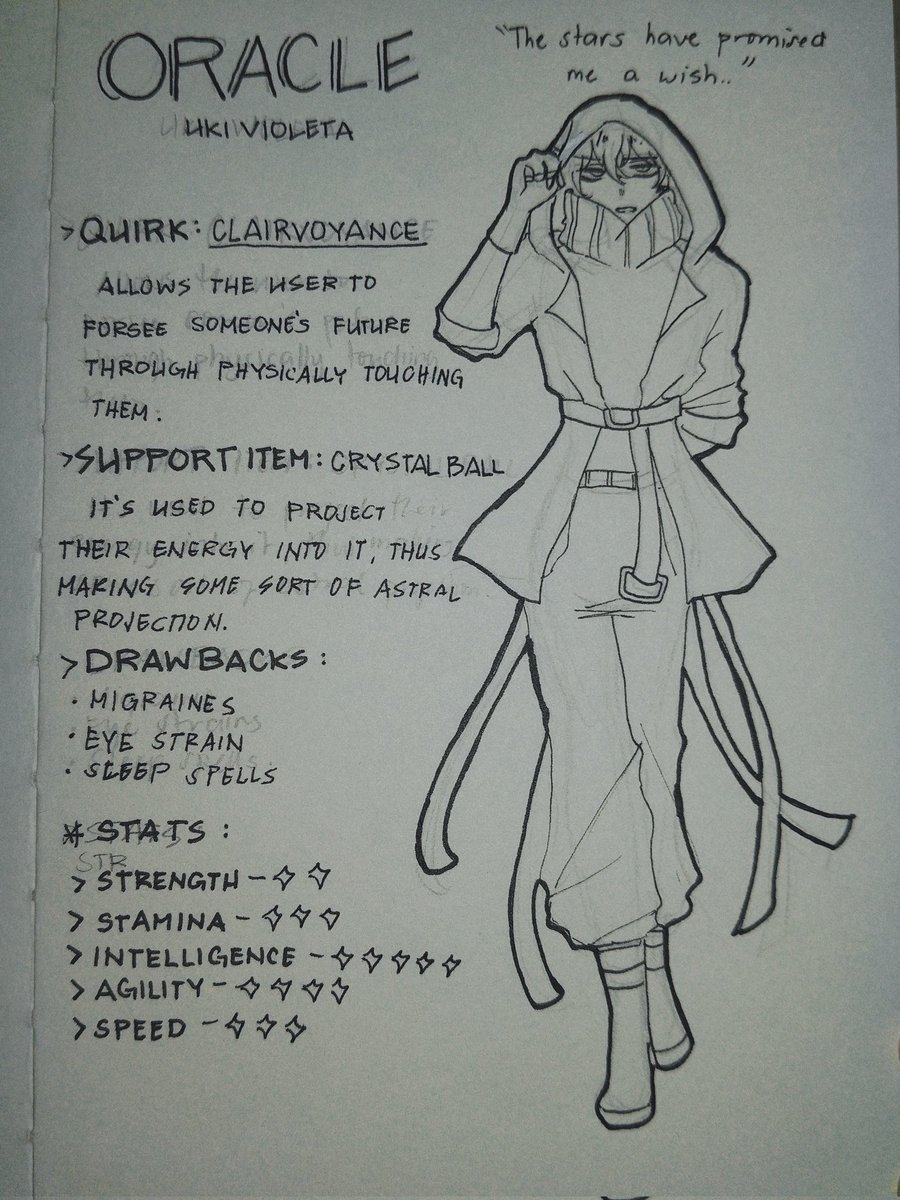 ORACLE
UKI VIOLETA
"The stars have promised
me a wish.."
> QUIRK: CLAIRVOYANCE
ALLOWS THE USER TO
FORSEE SOMEONE'S FUTURE
THROUGH PHYSICALLY TOUCHING
THEM.
> SUPPORT ITEM: CRYSTAL BALL
IT'S USED TO PROJECT
THEIR ENERGY INTO IT, THUS
MAKING SOME SORT OF ASTRAL
PROJECTION.
> DRAWBACKS:
· MIGRAINES
· EYE STRAIN
· SLEEP SPELLS
* STATS:
> STRENGTH - ✧ ✧
> STAMINA - ✧ ✧ ✧
> INTELLIGENCE - ✧ ✧ ✧ ✧ ✧
> AGILITY - ✧ ✧ ✧ ✧
> SPEED - ✧ ✧ ✧